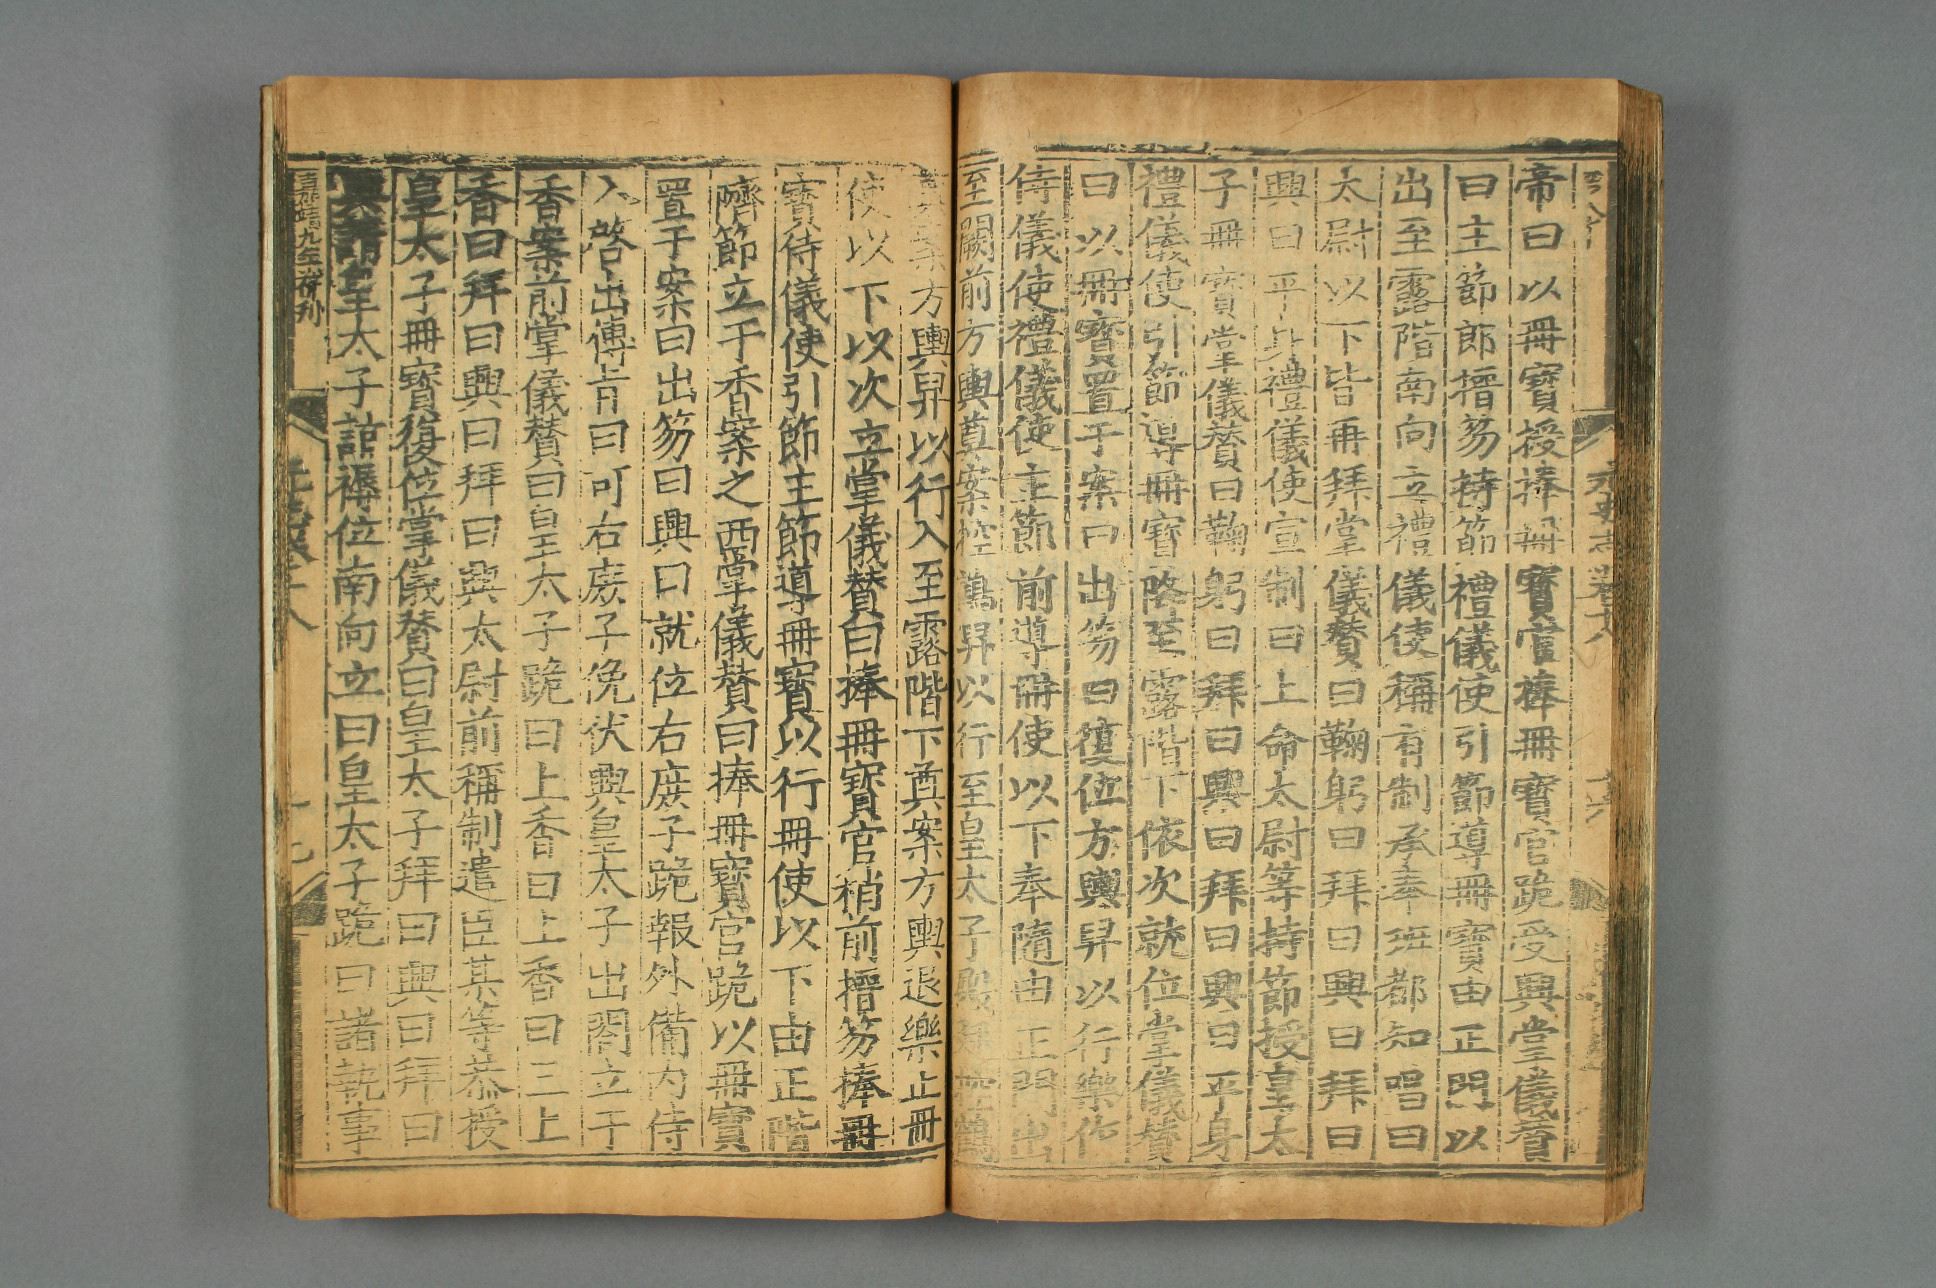 帝曰以冊寶授捧冊寶官捧冊寶官跪受興掌儀賛
曰主節郎搢笏持節禮儀使引節導冊寶由正門以
出至露階南向立禮儀使稱有制承奉班都知唱曰
太尉以下皆再拜掌儀賛曰鞠躬曰拜曰興曰拜曰
興曰平身禮儀使宣制曰上命太尉等持節授皇太
子冊寶掌儀賛曰鞠躬曰拜曰興曰拜曰興曰平身
禮儀使引節導冊寶降至露階下依次就位掌儀賛
曰以冊寶置于案曰出笏曰復位方輿舁以行樂作
侍儀使禮儀使主節前導冊使以下奉隨由正門出
至闕前方輿奠案 舁以行至皇太子殿
案方輿舁以行入至露階下奠案方輿退樂止冊
使以下以次立掌儀賛曰捧冊寶官稍前搢笏捧冊
寶侍儀使引節主節導冊寶以行冊使以下由正階
隮節立于香案之西掌儀賛曰捧冊寶官跪以冊寶
置于案曰出笏曰興曰就位右庶子跪報外備内侍
入啓出傳旨曰可右庶子俛伏興皇太子出閤立于
香案前掌儀賛曰皇太子跪曰上香曰上香曰三上
香曰拜曰興曰拜曰興太尉前稱制遣臣某等恭授
皇太子冊寶復位掌儀賛曰皇太子拜曰興曰拜曰
興請皇太子詣褥位南向立曰皇太子跪曰諸執事
嘉靖九年補刊